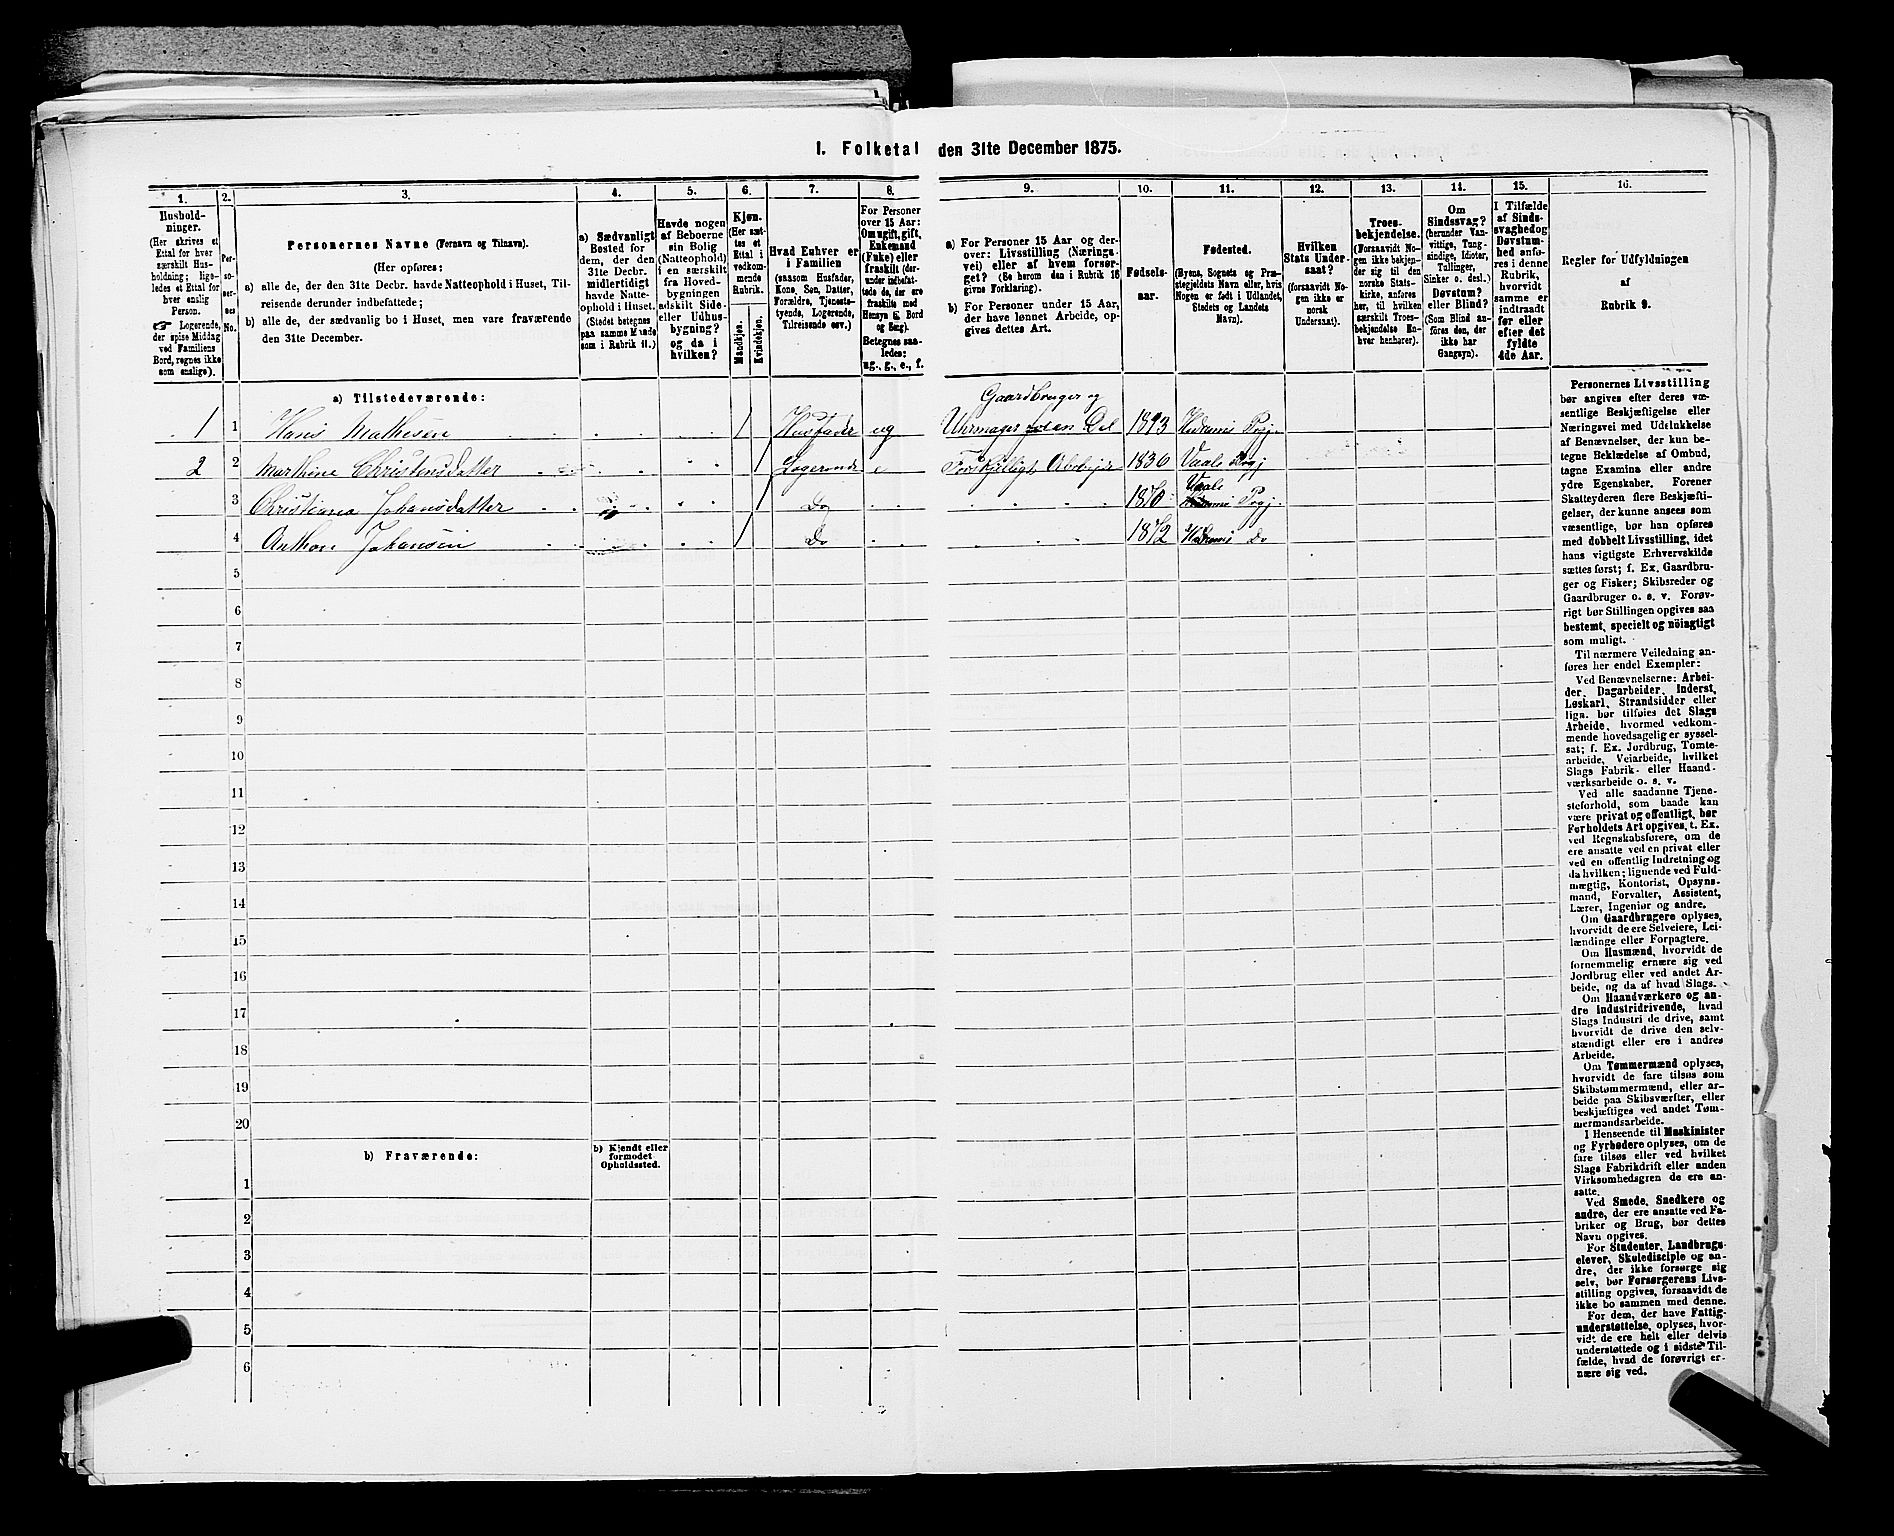 1. Folketal den 31te December 1875.
1.
2.
3.
4.
5.
6.
7.
8.
9.
10.
11.
12.
13.
14.
15.
16.
Hushold-
ninger.
(Her skrives et
Ettal for hver
særskilt Hus-
holdning; lige-
ledes et Ettal for
hver enslig
Person.
Logerende,
der spise Middag
ved Familiens
Bord, regnes ikke
som enslige).
Per-
so-
ner-
nes
No.
Personernes Navne (Fornavn og Tilnavn).
(Her opføres:
a) alle de, der den 31te Decbr. havde Natteophold i Huset, Til-
reisende derunder indbefattede;
b) alle de, der sædvanlig bo i Huset, men vare fraværende
den 31te December.
a) Sædvanligt
Bosted for
dem, der den
31te Decbr.
midlertidigt
havde Natte-
ophold i Huset.
(Stedet betegnes
paa samme Maade
som i Rubrik 11.)
Havde nogen
af Beboerne
sin Bolig
(Natteophold)
i en særskilt
fra Hoved-
bygningen
adskilt Side-
eller Udhus-
bygning?
og da i
hvilken?
Kjøn.
(Her sæt-
tes et
Ettal i
vedkom-
mende
Rubrik.
Mandkjøn.
Kvindekjøn.
Hvad Enhver er
i Familien
(saasom Husfader,
Kone, Søn, Datter,
Forældre, Tjeneste-
tyende, Logerende,
Tilreisende osv.)
For Personer
over 15 Aar:
Om ugift, gift,
Enkemand
(Enke) eller
fraskilt (der-
under indbefat-
tede de, der ere
fraskilte med
Hensyn til Bord
og Seng).
Betegnes saa-
ledes:
ug., g., e., f.
a) For Personer 15 Aar og der-
over: Livsstilling (Nærings-
vei) eller af hvem forsør-
get? (Se herom den i Rubrik 16
givne Forklaring).
b) For Personer under 15 Aar,
der have lønnet Arbeide, op-
gives dettes Art.
Fødsels-
aar.
Fødested.
(Byens, Sognets og Præ-
stegjeldets Navn eller, hvis
Nogen er født i Udlandet,
Stedets og Landets
Navn).
Hvilken
Stats Under-
saat?
(forsaavidt No-
gen ikke er
norsk
Undersaat).
Troes-
bekjendelse.
(Forsaavidt No-
gen ikke bekjen-
der sig til den
norske Stats-
kirke, anføres
her, til hvilken
særskilt Troes-
bekjendelse En-
hver henhører).
Om
Sindssvag?
(herunder Van-
vittige, Tung-
sindige, Idioter,
Tullinger,
Sinker o. desl.)
Døvstum?
eller Blind?
(Som Blind an-
føres den, der
ikke har
Gangsyn).
I Tilfælde
af Sinds-
svaghed og
Døvstum-
hed anfø-
res i denne
Rubrik,
hvorvidt
samme er
indtraadt
før eller
efter det
fyldte
4de Aar.
Regler for Udfyldningen
af
Rubrik 9.
a) Tilstedeværende:
Gaardbruger og
1 1 Hans Mathisen 1 Husfader ug Uhrmager 1843 Hedrums Prgj.
2 2 Marthine Christensdatter 1 Logerende e Forskjelligt Arbeide 1830 Vaale Prgj
3 Christiana Johansdatter 1 Do 1870 Vaale Prgj.
4 Anthon Johansen 1 Do 1872 Hedrums Do
5
6
7
8
9
10
11
12
13
14
15
16
17
18
19
20
b) Fraværende:
b) Kjendt eller
formodet
Opholdssted.
1
2
3
4
5
6
Personernes Livsstilling
bør angives efter deres væ-
sentlige Beskjæftigelse eller
Næringsvei med Udelukkelse
af Benævnelser, der kun be-
tegne Beklædelse af Ombud,
tagne Examina eller andre
ydre Egenskaber. Forener
Skatteyderen flere Beskjæfti-
gelser, der kunne ansees som
væsentlige, bør han opføres
med dobbelt Livsstilling, idet
hans vigtigste Erhvervskilde
sættes først; f. Ex. Gaardbru-
ger og Fisker; Skibsreder og
Gaardbruger o. s. v. Forøv-
rigt bør Stillingen opgives saa
bestemt, specielt og nöiagtigt
som muligt.
Til nærmere Veiledning an-
føres her endel Exempler:
Ved Benævnelserne: Arbei-
der, Dagarbeider, Inderst,
Løskarl, Strandsidder eller
lign. bør tilføies det Slags
Arbeide, hvormed vedkom-
mende hovedsagelig er syssel-
sat; f. Ex. Jordbrug, Tomte-
arbeide, Veiarbeide, hvilket
Slags Fabrik- eller Haand-
værksarbeide o. s. v.
Ved alle saadanne Tjene-
steforhold, som baade kan
være privat og offentligt, bør
Forholdets Art opgives, t. Ex.
ved Regnskabsførere, om de
ere ansatte ved en privat eller
ved en offentlig Indretning og
da hvilken; lignende ved Fuld-
mægtig, Kontorist, Opsyns-
mand, Forvalter, Assistent,
Lærer, Ingeniør og andre.
Om Gaardbrugere oplyses,
hvorvidt de ere Selveiere, Lei-
lændinge eller Forpagtere.
Om Husmænd, hvorvidt de
fornemmelig ernære sig ved
Jordbrug eller ved andet Ar-
beide, og da af hvad Slags.
Om Haandværkere og an-
dre Industridrivende, hvad
Slags Industri de drive, samt
hvorvidt de drive den selv-
stændigt eller ere i andres
Arbeide.
Om Tømmermænd oplyses,
hvorvidt de fare tilsøs som
Skibstømmermænd, eller ar-
beide paa Skibsværfter, eller
beskjæftiges ved andet Tøm-
mermandsarbeide.
I Henseende til Maskinister
og Fyrbødere oplyses, om de
fare tilsøs eller ved hvilket
Slags Fabrikdrift eller anden
Virksomhedsgren de ere an-
satte.
Ved Smede, Snedkere og
andre, der ere ansatte ved Fa-
briker og Brug, bør dettes
Navn opgives.
For Studenter, Landbrugs-
elever, Skoledisciple og an-
dre, der ikke forsørge sig
selv, bør Forsørgerens Livs-
stilling opgives, forsaavidt de
ikke bo sammen med denne.
For dem, der have Fattig-
understøttelse, oplyses, hvor-
vidt de ere helt eller delvis
understøttede og i sidste Til-
fælde, hvad de forøvrigt er-
nære sig ved.